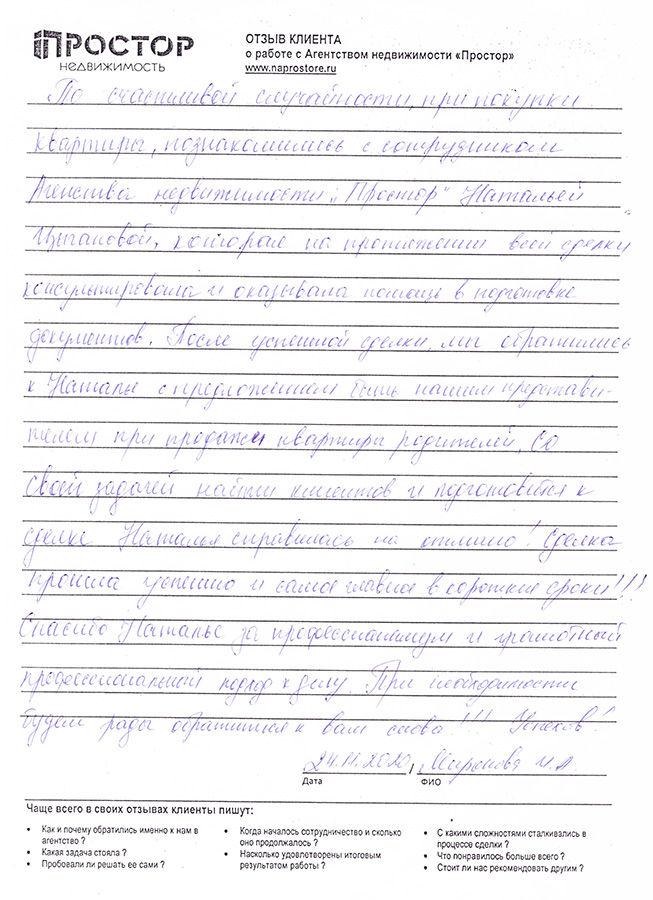 ПРОСТОР
НЕДВИЖИМОСТЬ
ОТЗЫВ КЛИЕНТА
о работе с Агентством недвижимости «Простор»
www.naprostore.ru
По счастливой случайности, при покупки
квартиры, познакомились с сотрудником
Агенства недвижимости „Простор" Натальей
Цыгановой, которая на протяжении всей сделки
консультировала и оказывала помощь в подготовке
документов. После успешной сделки, мы обратились
к Наталье с предложением быть нашим представи-
телем при продажи квартиры родителей. Со
своей задачей найти клиентов и подготовится к
сделке Наталья справилась на отлично! Сделка
прошла успешно и самое главное в короткие сроки!!!
Спасибо Наталье за профессионализм и грамотный
профессиональный подход к делу. При необходимости
будем рады обратиться к вам снова!!! Успехов!
24.11.2020, Миронова И.А
Дата ФИО
Чаще всего в своих отзывах клиенты пишут:
• Как и почему обратились именно к нам в
агентство ?
• Какая задача стояла ?
• Пробовали ли решать ее сами ?
• Когда началось сотрудничество и сколько
оно продолжалось ?
• Насколько удовлетворены итоговым
результатом работы ?
• С какими сложностями сталкивались в
процессе сделки ?
• Что понравилось больше всего ?
• Стоит ли нас рекомендовать другим ?